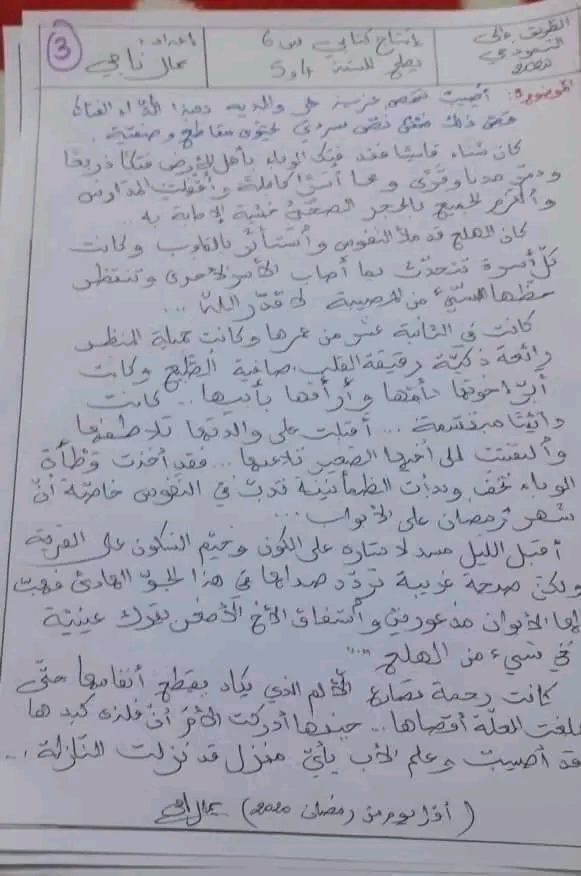 الطريق إلى
النموذجي
2020
إنتاج كتابي س 6
يصلح للسنة 4 و 5
إعداد :
جمال ناجي
3
الموضوع: أصيبت شخص عزيز على والديه بهذا الداء الفتاك
قص ذلك منتج نص سردي يحتوي مقاطع وصفية.
كان شتاء قاسيا فقد فتك الوباء بأهل الأرض فتكا ذريعا
ودمّر مدنا وقرى ومحا أسرا كاملة وأقفلت المدارس
وألتزم الجميع بالحجر الصحّيّ خشية الإصابة به ..
كان الهلع قد ملأ النفوس وأستأثر بالقلوب وكانت
كلّ أسرة تتحدّث بما أصاب الأسر الأخرى وتنتظر
حظها السّيّء من المصيبة لا قدّر اللّه ...
كانت في الثانية عشر من عمرها وكانت جميلة المنظر
رائعة ذكيّة رقيقة القلب صافية الطّبع وكانت
أبرّ اخوتها بأمّها وأرأفها بأبيها .. كانت
دائما مبتسمة ... أقبلت على والدتها تلاطفها
وألتفتت إلى أخيها الصغير تلاعبها ... فقد أخذت وطأة
الوباء تخف وبدأت الطمأنينة تدبّ في النفوس خاصّة أنّ
شهر رمضان على الأبواب ...
أقبل الليل مسدلا ستاره على الكون وخيّم السّكون على القرية
ولكنّ صرخة غريبة تردّد صداها في هذا الجوّ الهادئ فهبّ
لها الأبوان مذعورين وأستفاق الأخ الأصغر يفرك عينيه
في شيء من الهلع ...
كانت رحمة تصارع الألم الذي يكاد يقطع أنفاسها حتّى
بلغت العلّة أقصاها ... حينها أدركت الأمّ أنّ فلذة كبدها
قد أصيبت وعلم الأب بأيّ منزل قد نزلت النّازلة ...
( أول يوم من رمضان 2020 ) جمال ناجي